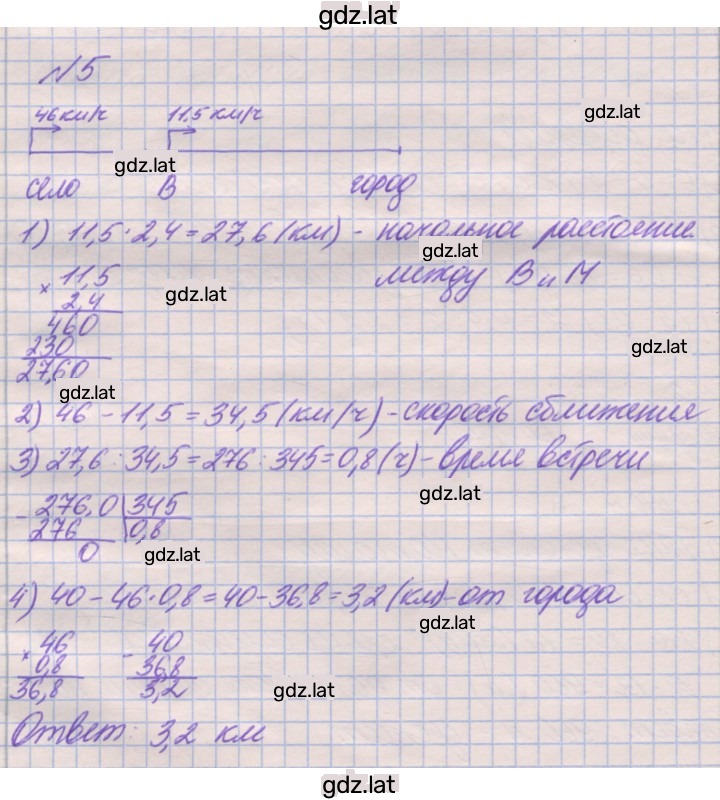 gdz.lat
№5
46 км/ч 11,5 км/ч gdz.lat
gdz.lat
село В город
1) 11,5 · 2,4 = 27,6 (км) - начальное расстояние
gdz.lat
между В и М
× 11,5
2,4
gdz.lat
460
230
gdz.lat
27,60
gdz.lat
2) 46 - 11,5 = 34,5 (км/ч) - скорость сближения
3) 27,6 : 34,5 = 276 : 345 = 0,8 (ч) - время встречи
gdz.lat
- 276,0 345
276 0,8
0
gdz.lat
4) 40 - 46 · 0,8 = 40 - 36,8 = 3,2 (км) - от города
gdz.lat
× 46 - 40
0,8 36,8
36,8 3,2
gdz.lat
Ответ: 3,2 км
gdz.lat